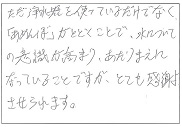 ただ浄水器を使っているだけでなく、
「あめんぼ」がとどくことで、水について
の意識が高まり、あたりまえに
なっていることですが、とても感謝
させられます。